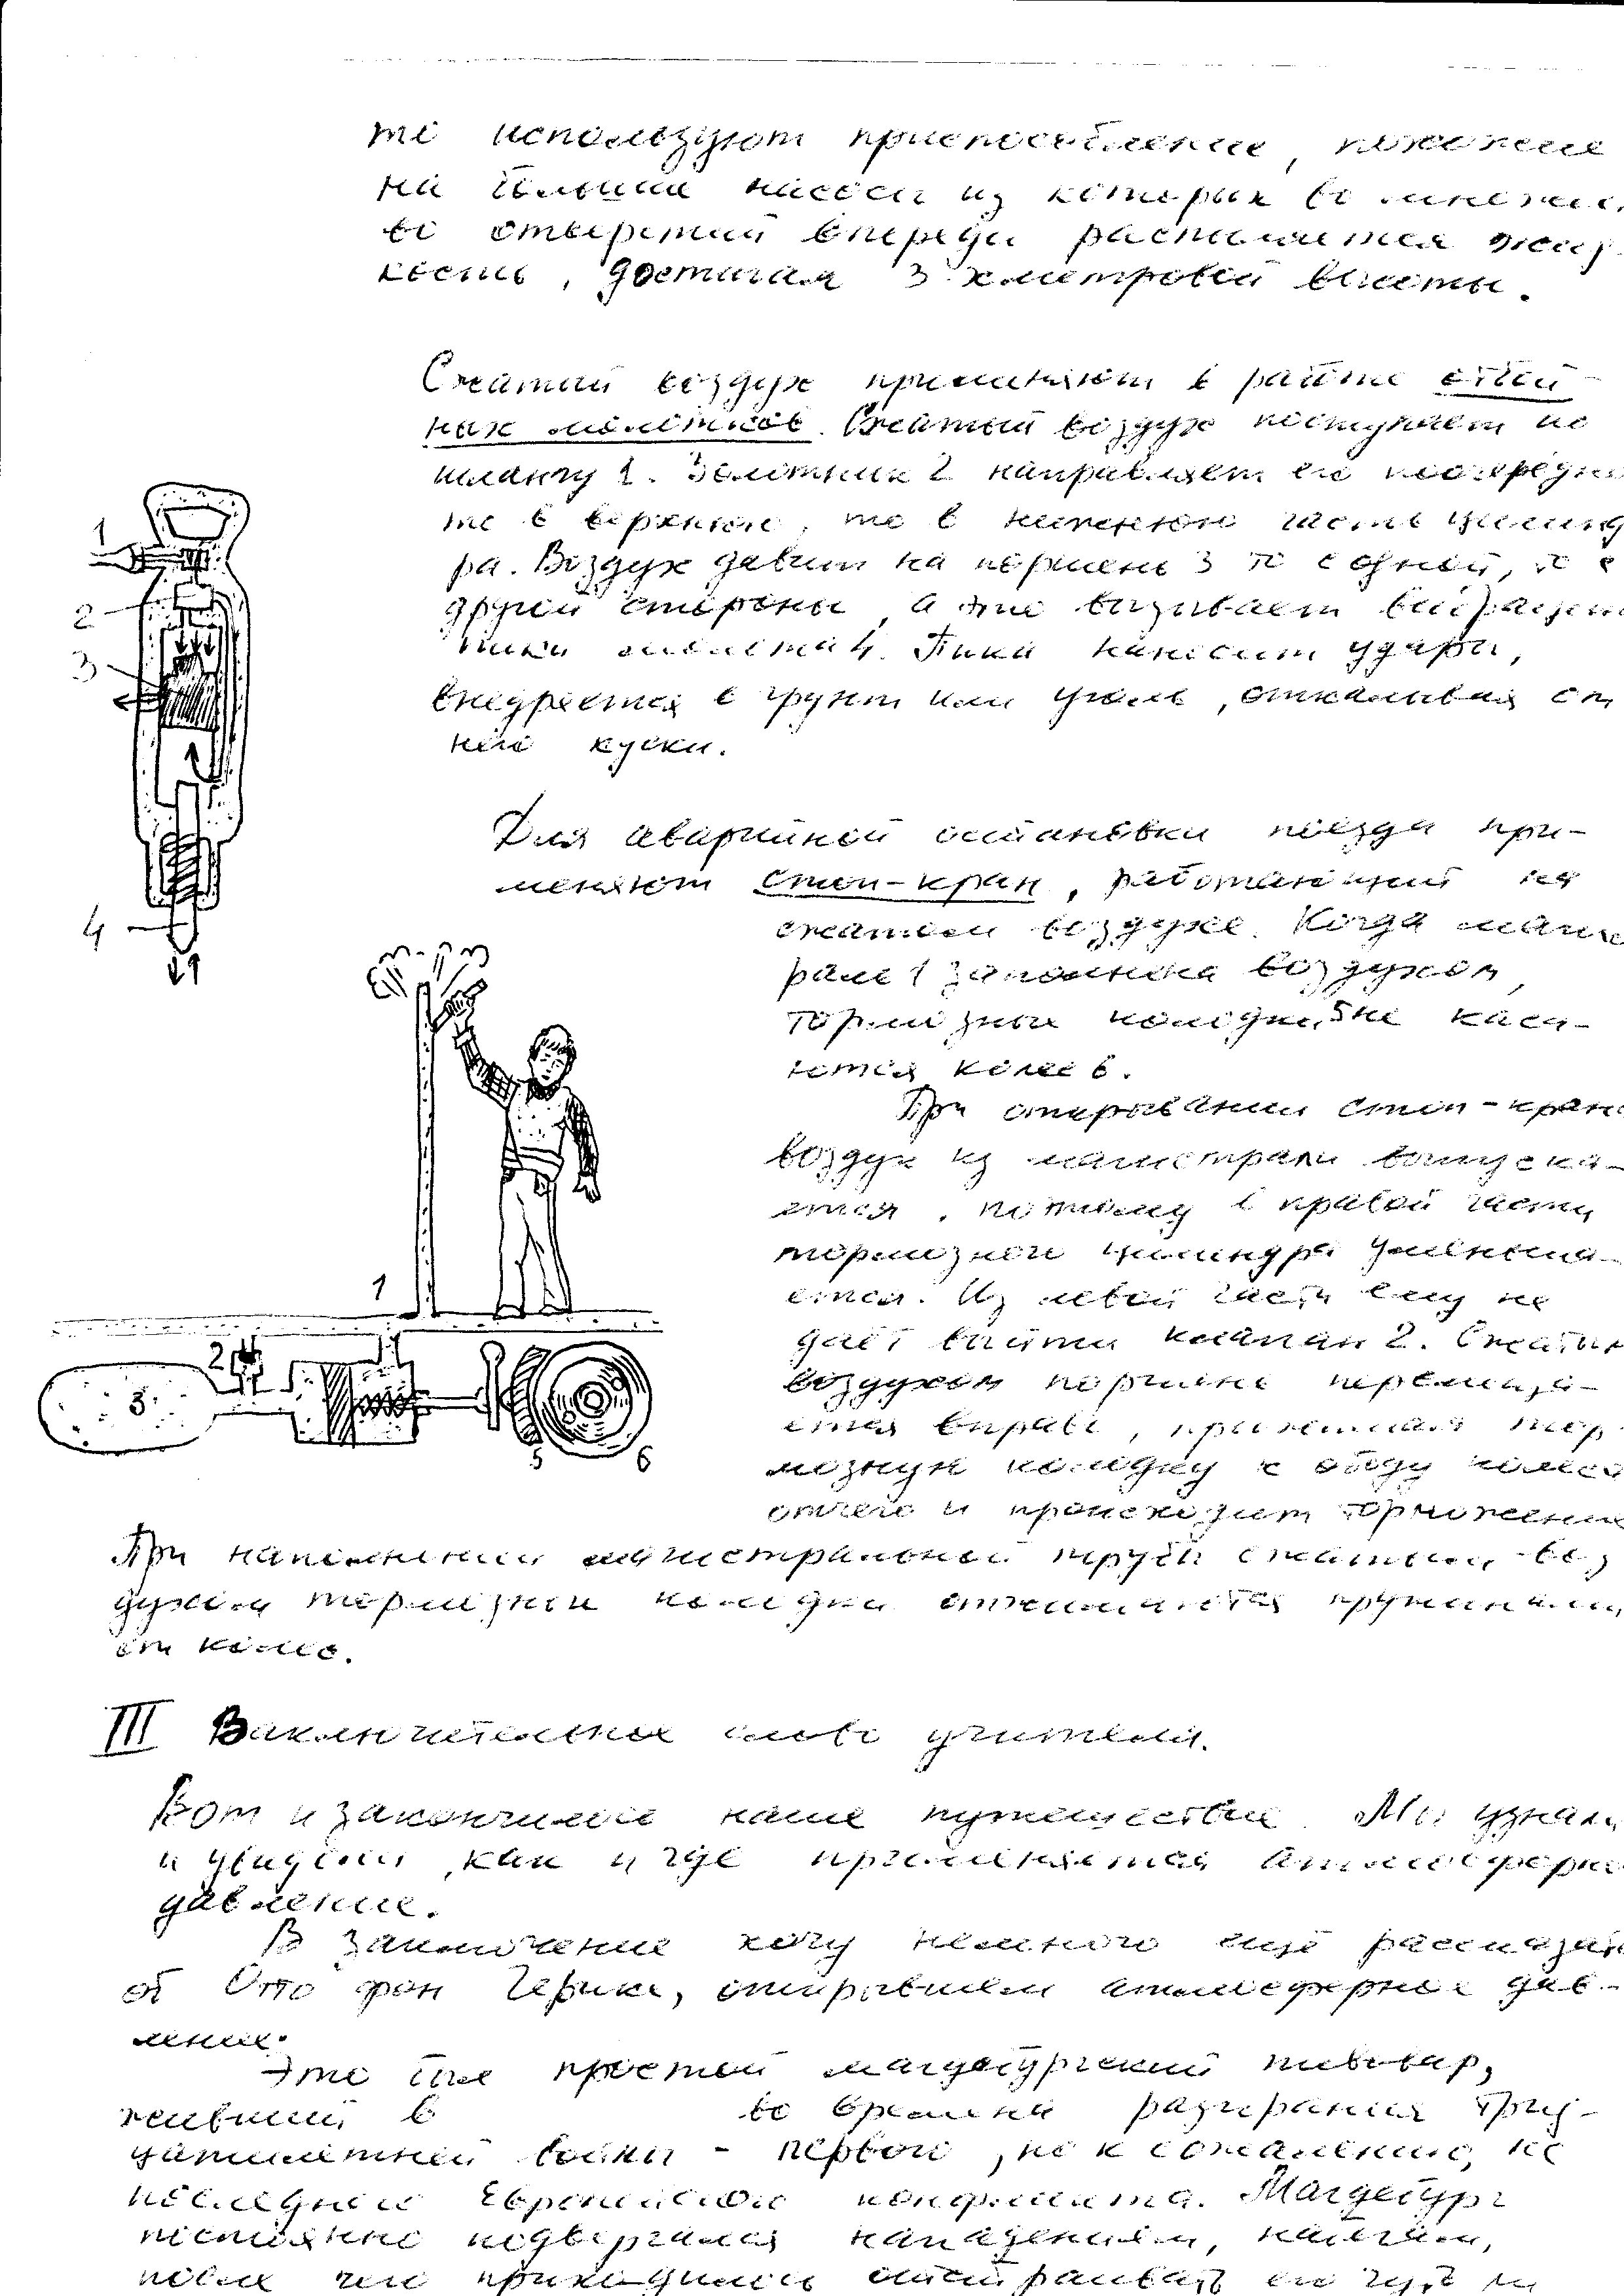 те используют приспособление, похожее
на большие насосы из которых
отверстий впереди распыляется жид-
кость, достигая 3х метровой высоты.
Сжатый воздух применяют в работе отбой-
ных молотков. Сжатый воздух поступает по
шлангу 1. Золотник 2 направляет его поочередно
то в верхнюю, то в нижнюю часть цилинд
ра. Воздух давит на поршень 3 то с одной, то с
другой стороны, а это вызывает
пики молотка 4. Пика наносит удары,
внедряется в грунт или уголь, откалывая от
него куски.
Для аварийной остановки поезда при-
меняют стоп-кран, работающий на
сжатом воздухе. Когда магист
раль 1 заполнена воздухом,
тормозные колодки 5 не каса-
ются колес 6.
При открывании стоп-крана
воздух из магистрали выпуска-
ется, поэтому в правой части
тормозного цилиндра уменьша-
ется. Из левой части ему не
даёт выйти клапан 2. Сжатым
воздухом поршень перемеща-
ется вправо, прижимает тор
мозную колодку к ободу колеса
отчего и происходит торможение
При наполнении магистральной трубы сжатым воз
духом тормозные колодки отжимаются пружинами
от колес.
III Заключительное слово учителя.
Вот и закончилось наше путешествие. Мы узнали
и увидели, как и где применяется атмосферное
давление.
В заключение хочу немного ещё рассказать
об Отто фон Герике, открывшем атмосферное дав-
ление.
Это был простой магдебургский пивовар,
живший в во времена разгорания Трид-
цатилетней войны - первого, но к сожалению, не
последнего европейского конфликта. Магдебург
постоянно подвергался нападениям,
1
2
3
4
1
2
3
5
6